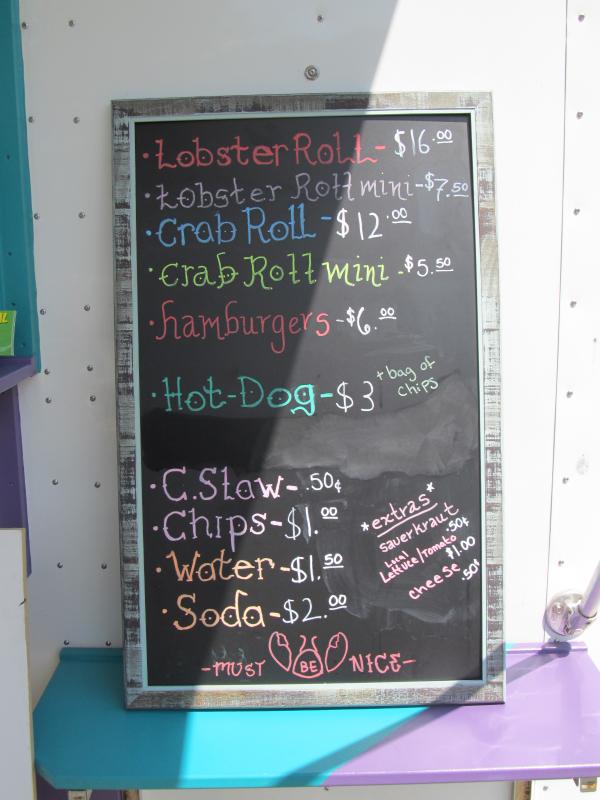 · Lobster Roll - $16.00
· Lobster Roll mini - $7.50
· Crab Roll - $12.00
· Crab Roll mini - $5.50
· hamburgers - $6.00
· Hot-Dog - $3 + bag of
chips
· C. Slaw - .50¢
· Chips - $1.00
· Water - $1.50
· Soda - $2.00
*extras*
sauerkraut
.50¢
Local
Lettuce/Tomato
$1.00
cheese .50¢
- MUST BE NICE -